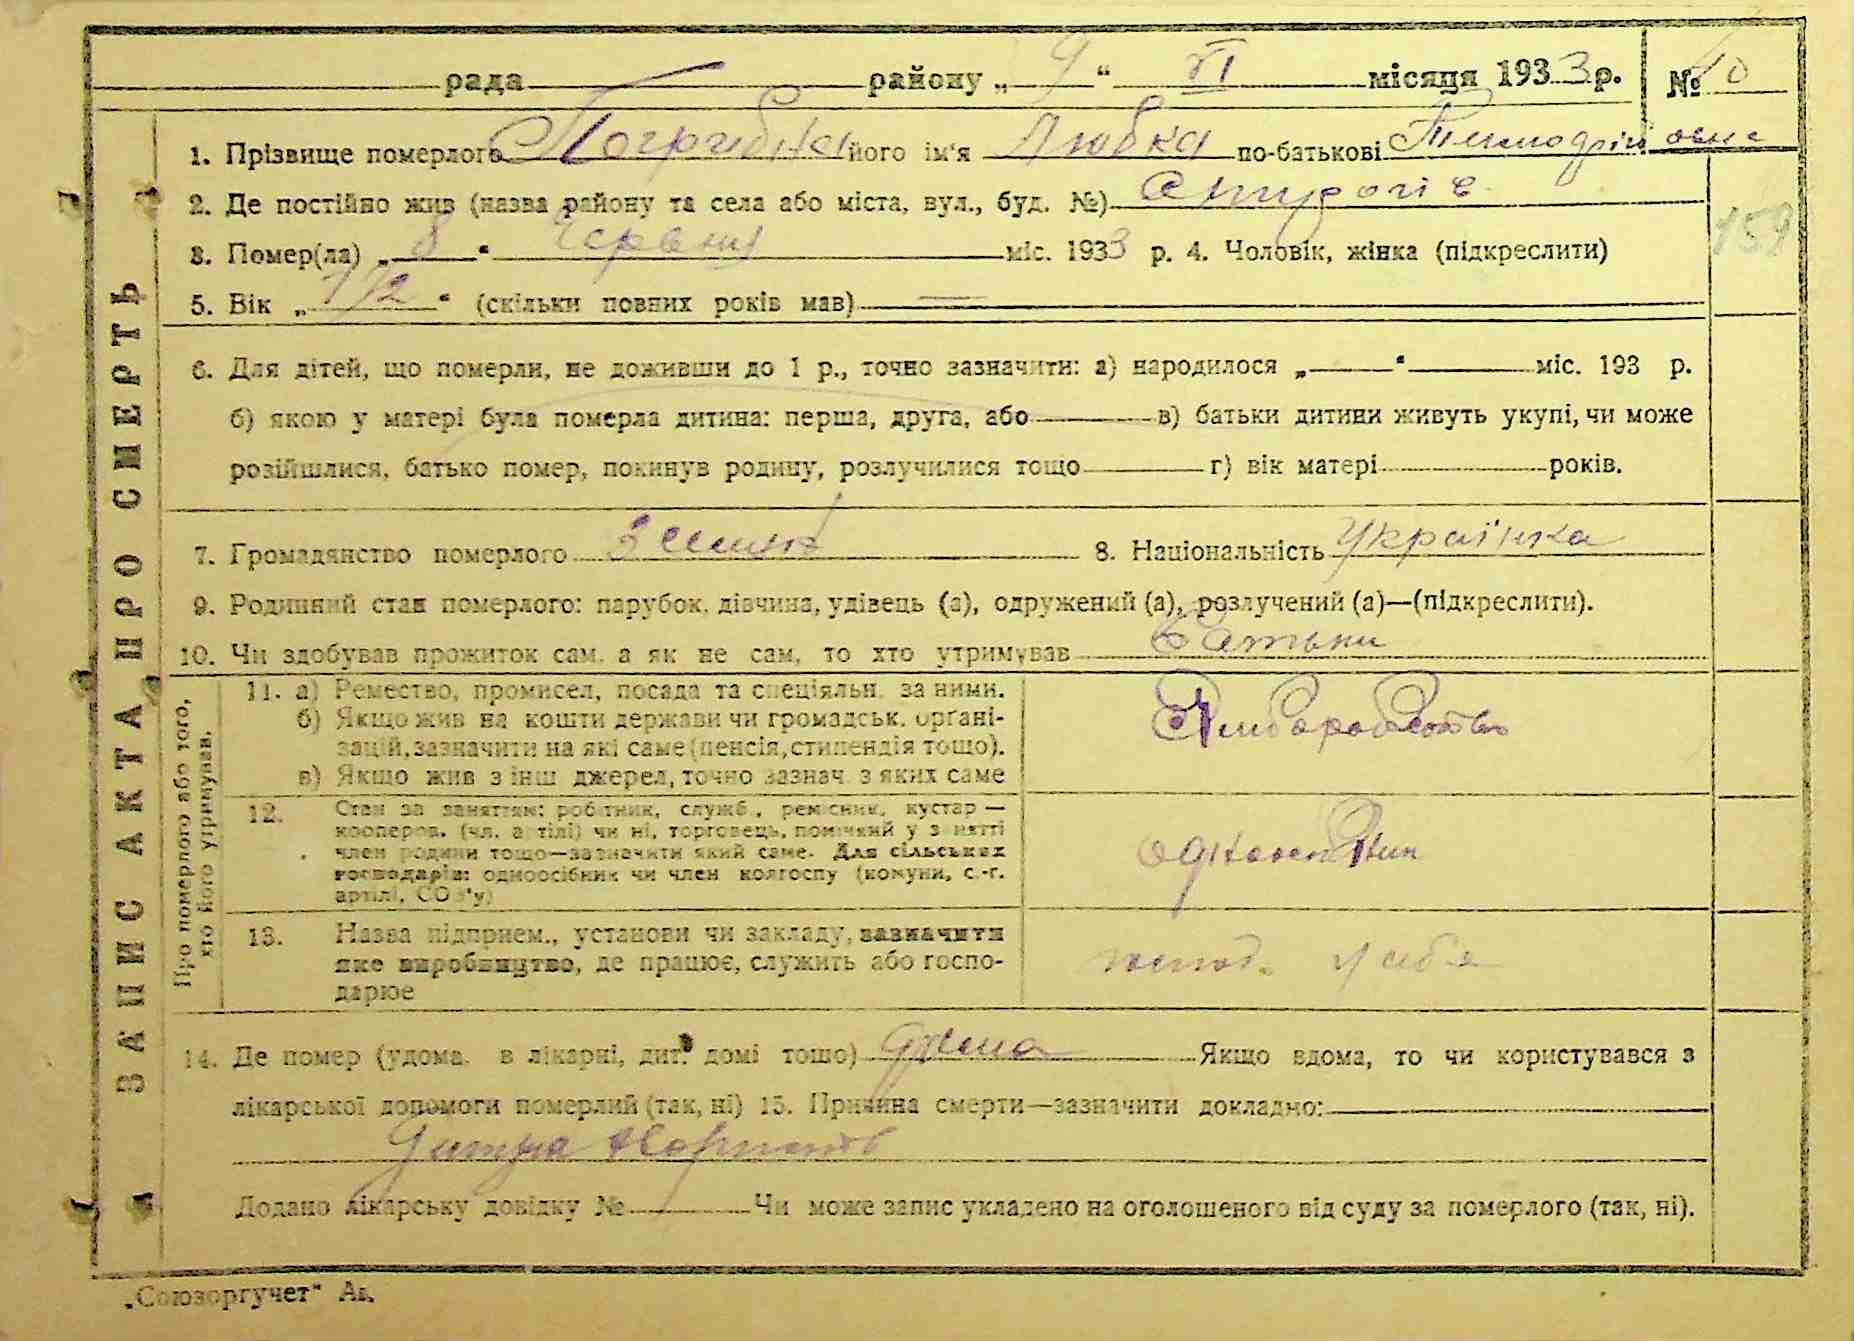 рада району „ 9 “ VI місяця 1933 р. № 40
1. Прізвище померлого його ім'я Любка по-батькові
2. Де постійно жив (назва району та села або міста, вул., буд. №)
3. Помер(ла) „ 8 “ Червня міс. 1933 р. 4. Чоловік, жінка (підкреслити)
5. Вік „ 1/2 “ (скільки повних років мав) —
6. Для дітей, що померли, не доживши до 1 р., точно зазначити: а) народилося „ “ міс. 193 р.
б) якою у матері була померла дитина: перша, друга, або в) батьки дитини живуть укупі, чи може
розійшлися, батько помер, покинув родину, розлучилися тощо г) вік матері років.
7. Громадянство померлого 8. Національність Українка
9. Родинний стан померлого: парубок, дівчина, удівець (а), одружений (а), розлучений (а)—(підкреслити).
10. Чи здобував прожиток сам, а як не сам, то хто утримував Батьки
ЗАПИС АКТА ПРО СМЕРТЬ
Про померлого або того, хто його утримував.
11. а) Ремество, промисел, посада та спеціяльн. за ними.
б) Якщо жив на кошти держави чи громадськ. органі-
зацій, зазначити на які саме (пенсія, стипендія тощо).
в) Якщо жив з інш джерел, точно зазнач. з яких саме
12. Стан за заняттям: робітник, служб., ремісник, кустар —
кооперов. (чл. артілі) чи ні, торговець, помічний у занятті
член родини тощо—зазначити який саме. Для сільських
господарів: одноосібник чи член колгоспу (комуни, с.-г.
артілі, СОЗ'у)
одноосібник
13. Назва підприєм., установи чи закладу, зазначити
яке виробництво, де працює, служить або госпо-
дарює
господ. у себе
14. Де помер (удома, в лікарні, дит. домі тощо) дома Якщо вдома, то чи користувався з
лікарської допомоги померлий (так, ні) 15. Причина смерти—зазначити докладно:
Додано лікарську довідку № Чи може запис укладено на оголошеного від суду за померлого (так, ні).
159
„Союзоргучет“